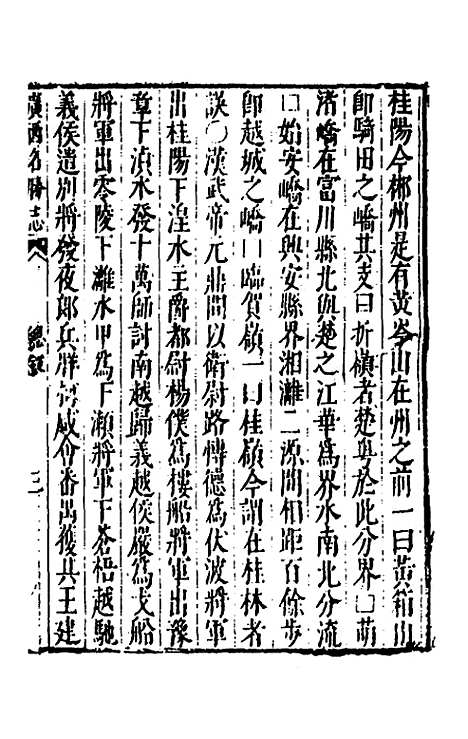 桂陽今郴州是有黃岑山在州之前一曰黃箱山
即騎田之嶠其支曰折嶺者楚粵於此分界□萌
渚嶠在富川縣北與楚之江華為界水南北分流
□始安嶠在興安縣界湘灕二源間相距百餘步
即越城之嶠□臨賀嶺一曰桂嶺今謂在桂林者
誤○漢武帝元鼎間以衛尉路博德為伏波將軍
出桂陽下湟水主爵都尉楊僕為樓船將軍出豫
章下湞水發十萬師討南越歸義越侯嚴為戈船
將軍出零陵下灕水甲為下瀨將軍下蒼梧越馳
義侯遣別將發夜郎兵牂牁咸會番禺獲其王建
廣西名勝志 總叙 三